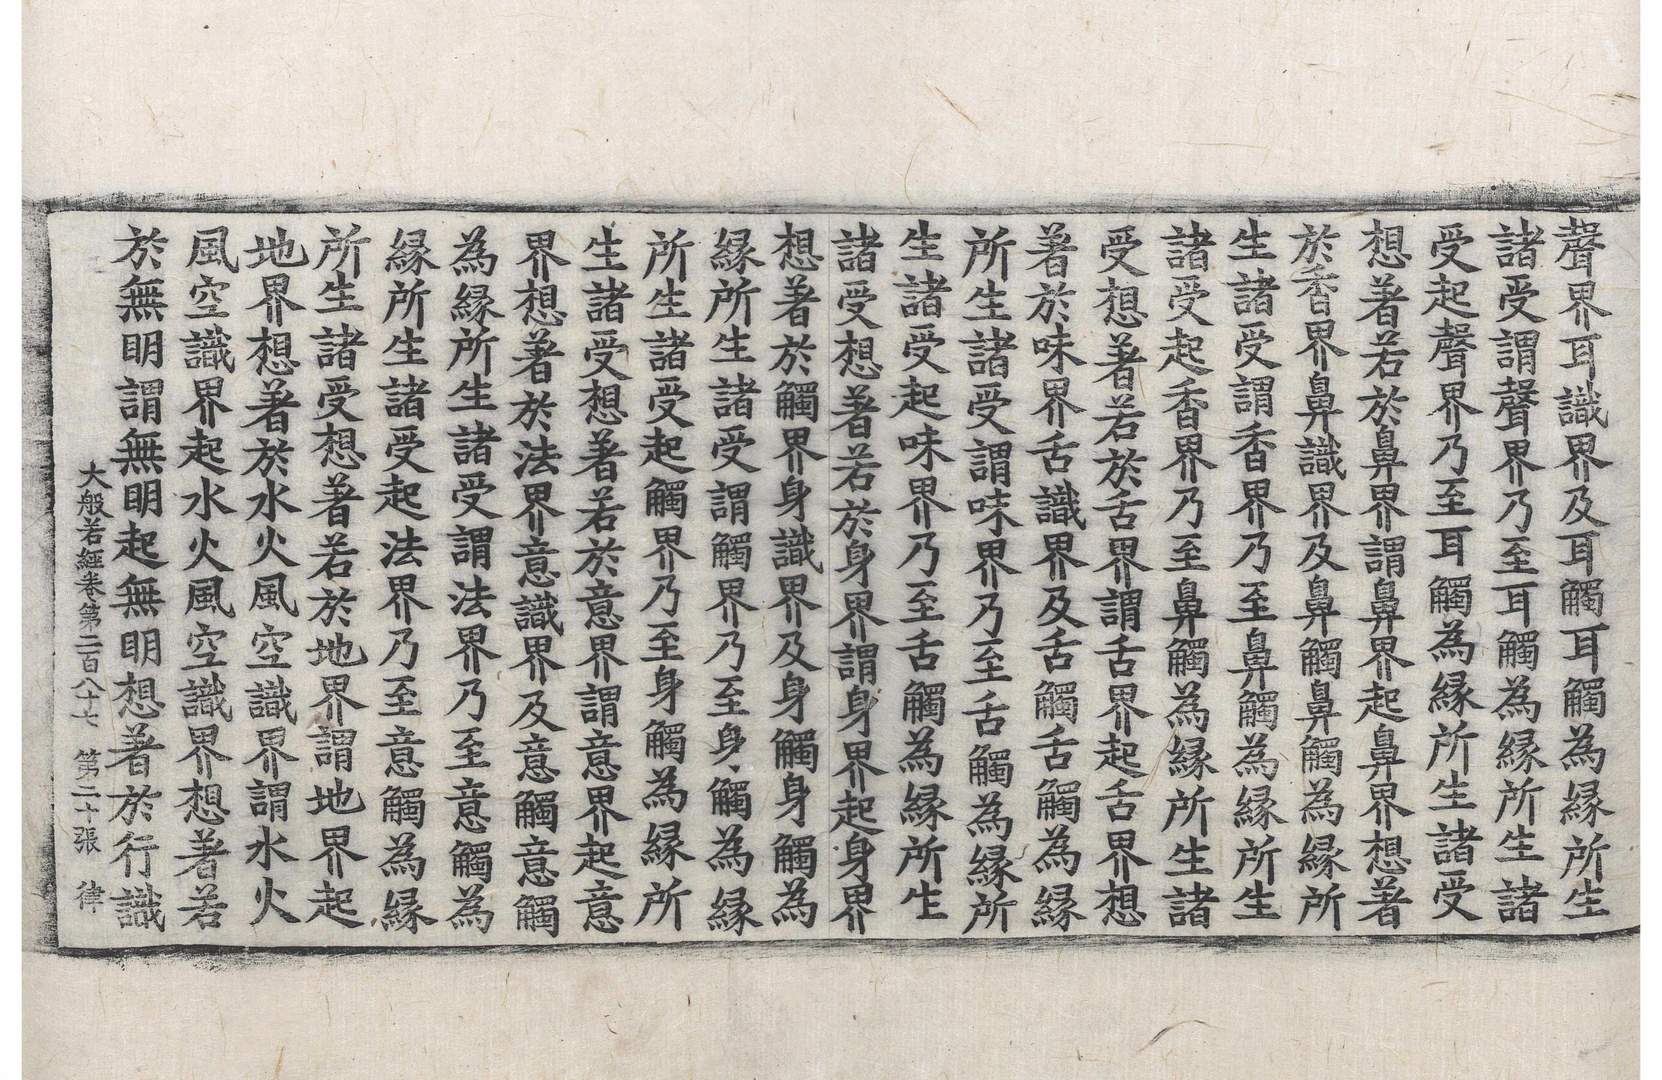 聲界耳識界及耳觸耳觸為縁所生
諸受謂聲界乃至耳觸為縁所生諸
受起聲界乃至耳觸為縁所生諸受
想著若於鼻界謂鼻界起鼻界想著
於香界鼻識界及鼻觸鼻觸為縁所
生諸受謂香界乃至鼻觸為縁所生
諸受起香界乃至鼻觸為縁所生諸
受想著若於舌界謂舌界起舌界想
著於味界舌識界及舌觸舌觸為縁
所生諸受謂味界乃至舌觸為縁所
生諸受起味界乃至舌觸為縁所生
諸受想著若於身界謂身界起身界
想著於觸界身識界及身觸身觸為
縁所生諸受謂觸界乃至身觸為縁
所生諸受起觸界乃至身觸為縁所
生諸受想著若於意界謂意界起意
界想著於法界意識界及意觸意觸
為縁所生諸受謂法界乃至意觸為
縁所生諸受起法界乃至意觸為縁
所生諸受想著若於地界謂地界起
地界想著於水火風空識界謂水火
風空識界起水火風空識界想著若
於無明謂無明起無明想著於行識
大般若經卷第二百八十七 第二十張 律